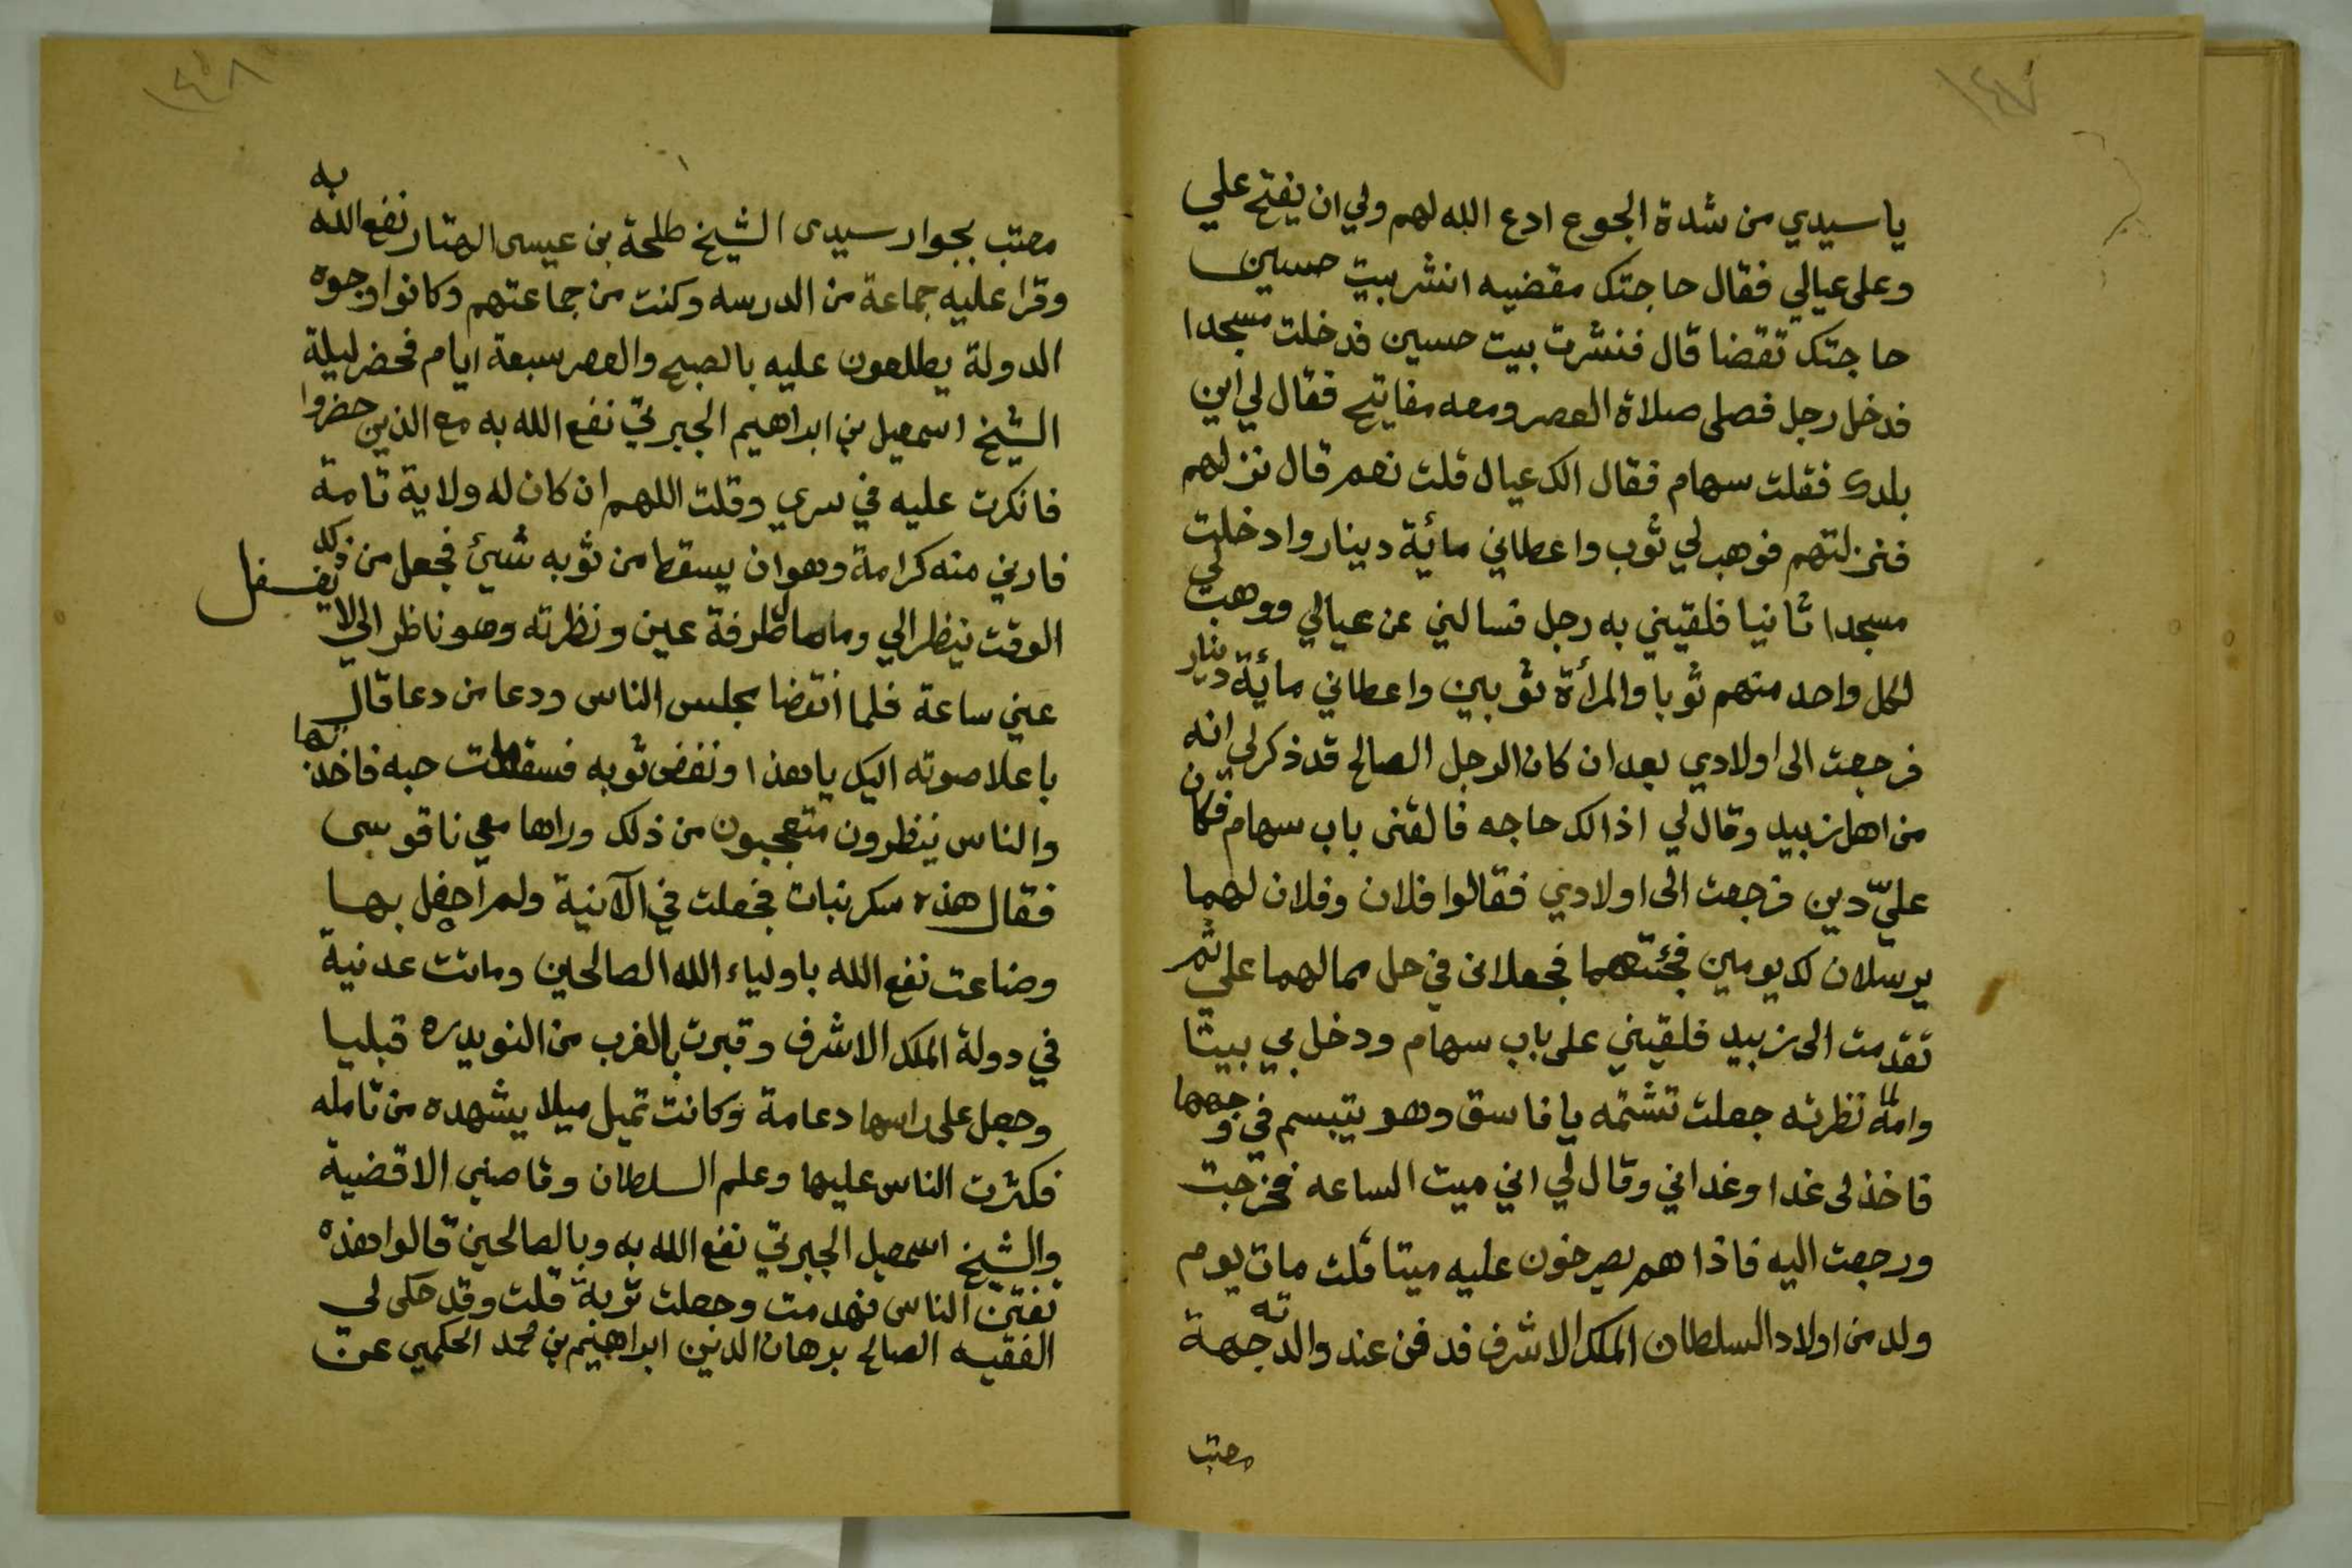 ١٤٧
ياسيدي من شدة الجوع ادع الله لهم ولي ان يفتح علي
وعلى عيالي فقال حاجتك مقضيه انشر بيت حسين
حاجتك تقضا قال فنشرت بيت حسين فدخلت مسجدا
فدخل رجل فصلى صلاة العصر ومعه مفاتيح فقال لي أين
بلدك فقلت سهام فقال الك عيال قلت نعم قال نزلهم
فنزلتهم فوهب لي ثوب واعطاني مائة دينار وادخلت
مسجدا ثانيا فلقيني به رجل فسالني عن عيالي ووهب لي
لكل واحد منهم ثوبا والمرأة ثوبين واعطاني مائة دينار
فرجعت الى اولادي بعد ان كان الرجل الصالح قد ذكر لي انه
من اهل زبيد وقال لي اذا لك حاجه فالقنى باب سهام فكان
عليّ دين فرجعت الى اولادي فقالوا فلان وفلان لهما
يرسلان لك يومين فجئتهما فجعلانى في حل مما لهما علي ثم
تقدمت الى زبيد فلقيني على باب سهام ودخل بي بيتا
وامه لما نظرته جعلت تشتمه يا فاسق وهو يتبسم في وجهها
فاخذ لى غدا وغداني وقال لي اني ميت الساعه فخرجت
ورجعت اليه فاذا هم يصرخون عليه ميتا قلت مات يوم
ولد من اولاد السلطان الملك الاشرف فدفن عند والدته جهة
معتب
١٤٨
معتب بجوار سيدى الشيخ طلحة بن عيسى الهتار نفع الله به
وقرا عليه جماعة من المدرسه وكنت من جماعتهم وكانوا وجوه
الدولة يطلعون عليه بالصبح والعصر سبعة ايام فحضر ليلة
الشيخ اسمعيل بن ابراهيم الجبرتي نفع الله به مع الذين حضروا
فانكرت عليه في سري وقلت اللهم ان كان له ولاية تامة
فارني منه كرامة وهو ان يسقط من ثوبه شيئ فجعل من ذلك
الوقت ينظر الي وماما طرفة عين ونظرته وهو ناظر الي لا يغفل
عني ساعة فلما انقضا مجلس الناس ودعا من دعا قال
باعلا صوته اليك ياهذا ونفض ثوبه فسقطت حبه فاخذتها
والناس ينظرون متعجبون من ذلك وراها معي ناقوسى
فقال هذه سكر نبات فجعلت في الآنية ولم احفل بها
وضاعت نفع الله باولياء الله الصالحين وماتت عدنية
في دولة الملك الاشرف وقبرت بالقرب من النويدره قبليا
وجعل على راسها دعامة وكانت تميل ميلا يشهده من تامله
فكثرت الناس عليها وعلم السلطان وقاضي الاقضية
والشيخ اسمعيل الجبرتي نفع الله به وبالصالحين قالوا هذه
تفتن الناس فهدمت وجعلت تربة قلت وقد حكى لي
الفقيه الصالح برهان الدين ابراهيم بن محمد الحكمي عن